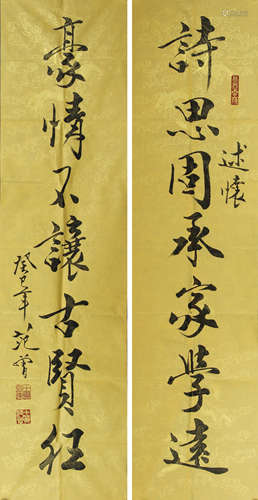 詩思固承家學遠
述懷
豪情不讓古賢狂
癸巳年 范曾